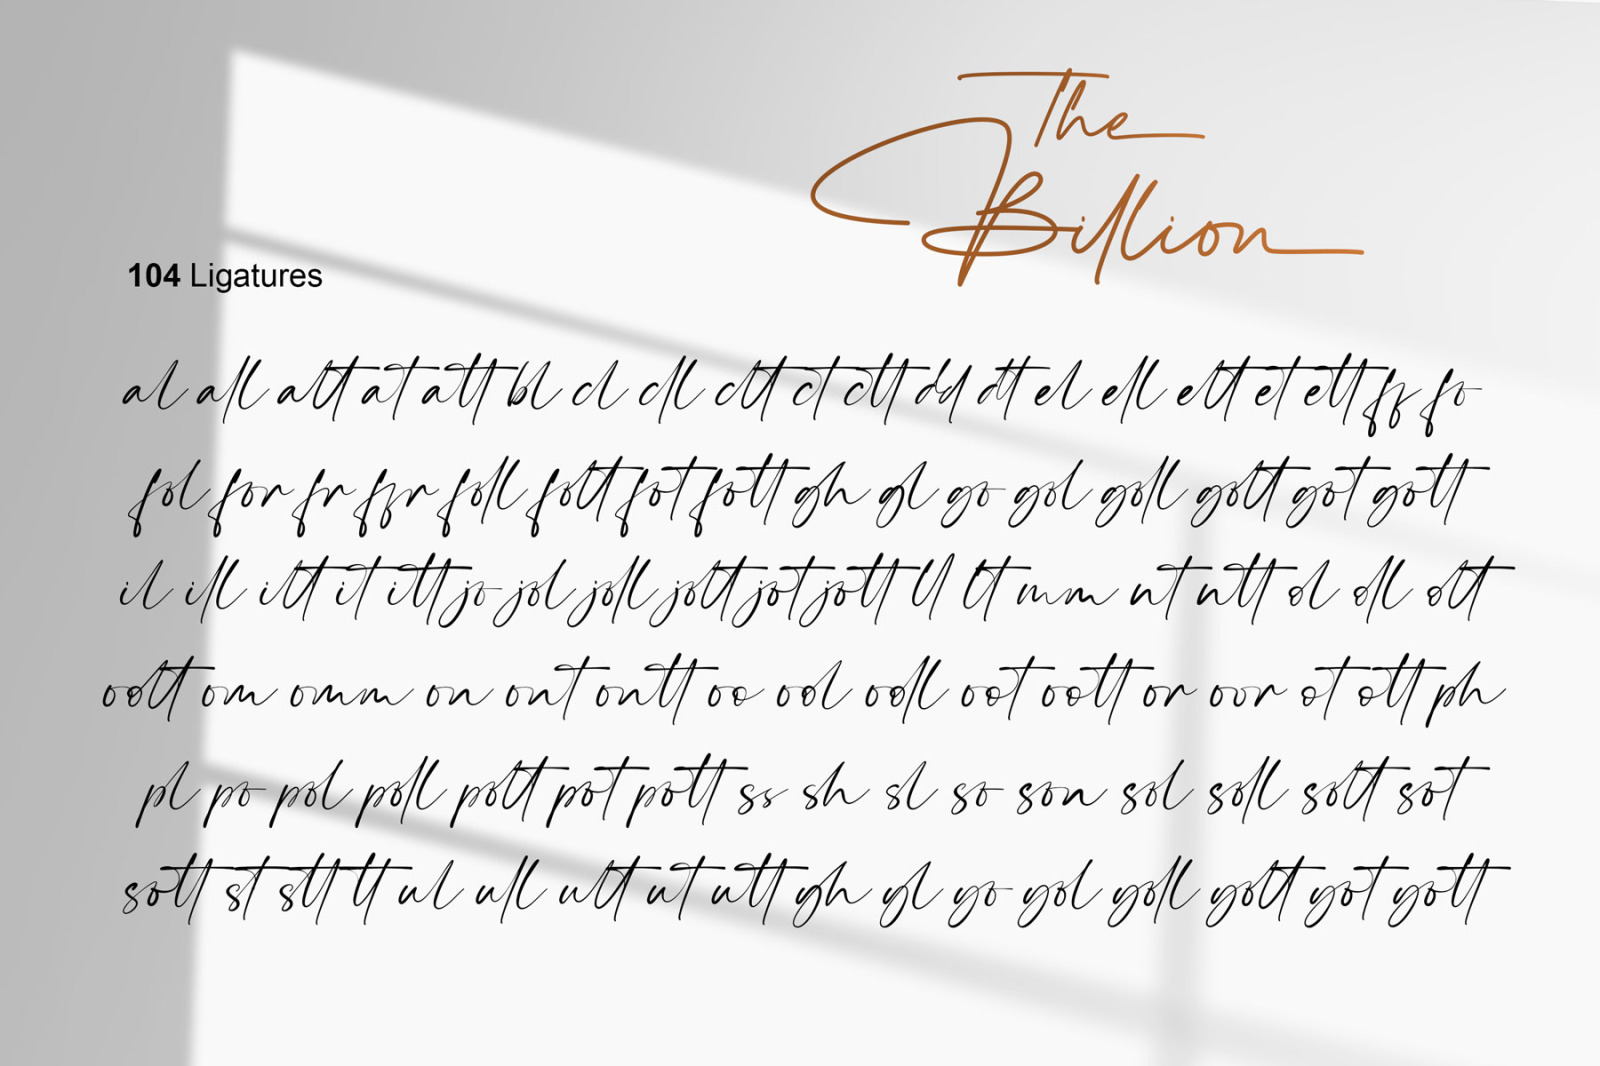 The
Billion
104 Ligatures
al all alt at att bl cl cll clt ct ctt dd dt el ell elt et ett ff fo
fol for fr ffr foll folt fot fott gh gl go gol goll golt got gott
il ill ilt it itt jo jol joll jolt jot jott ll lt mm nt ntt ol oll olt
oolt om omm on ont ontt oo ool ooll oot oott or oor ot ott ph
pl po pol poll polt pot pott ss sh sl so son sol soll solt sot
sott st stt tt ul ull ult ut utt yh yl yo yol yoll yolt yot yott